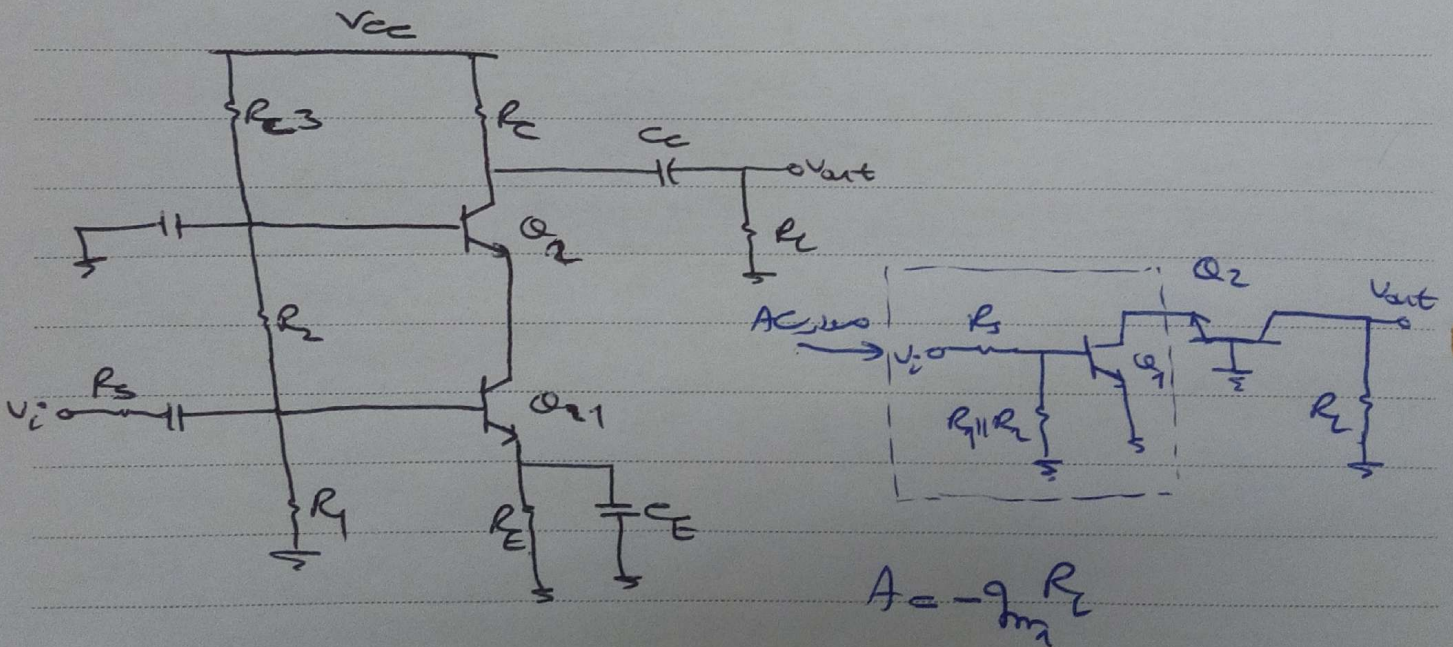 Vcc
Rc3
Rc
Cc
Vout
Q2
RL
R2
Rs
Vi
Q1
R1
RE
CE
Q2
Vout
Rs
Vi
Q1
R1||R2
RL
A = -gm RL